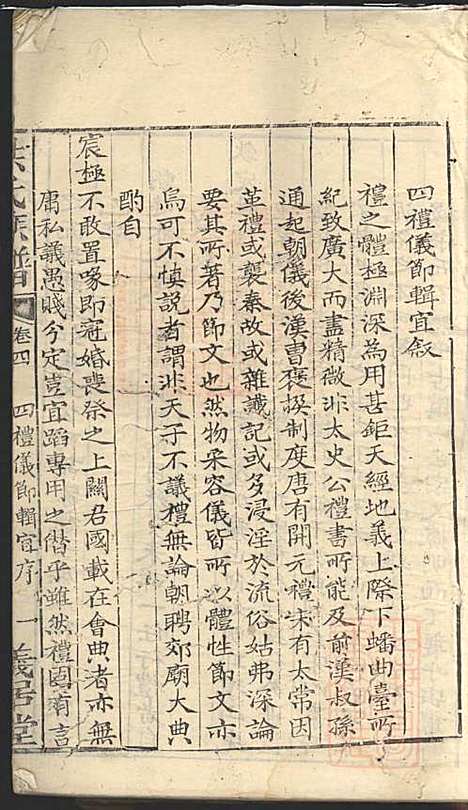 四禮儀節輯宜叙
禮之體極淵深為用甚鉅天經地義上際下蟠曲臺所
紀致廣大而盡精微非太史公禮書所能及前漢叔孫
通起朝儀後漢曹褒撰制度唐有開元禮宋有太常因
革禮或襲秦故或雜讖記或多浸淫於流俗姑弗深論
要其所著乃節文也然物采容儀皆所以體性節文亦
烏可不慎説者謂非天子不議禮無論朝聘郊廟大典
酌自
宸極不敢置喙即冠婚喪祭之上關君國載在會典者亦無
庸私議愚賤分定豈宜蹈專用之僭乎雖然禮固有言
氏族譜
卷四
四禮儀節輯宜序
一
義居堂